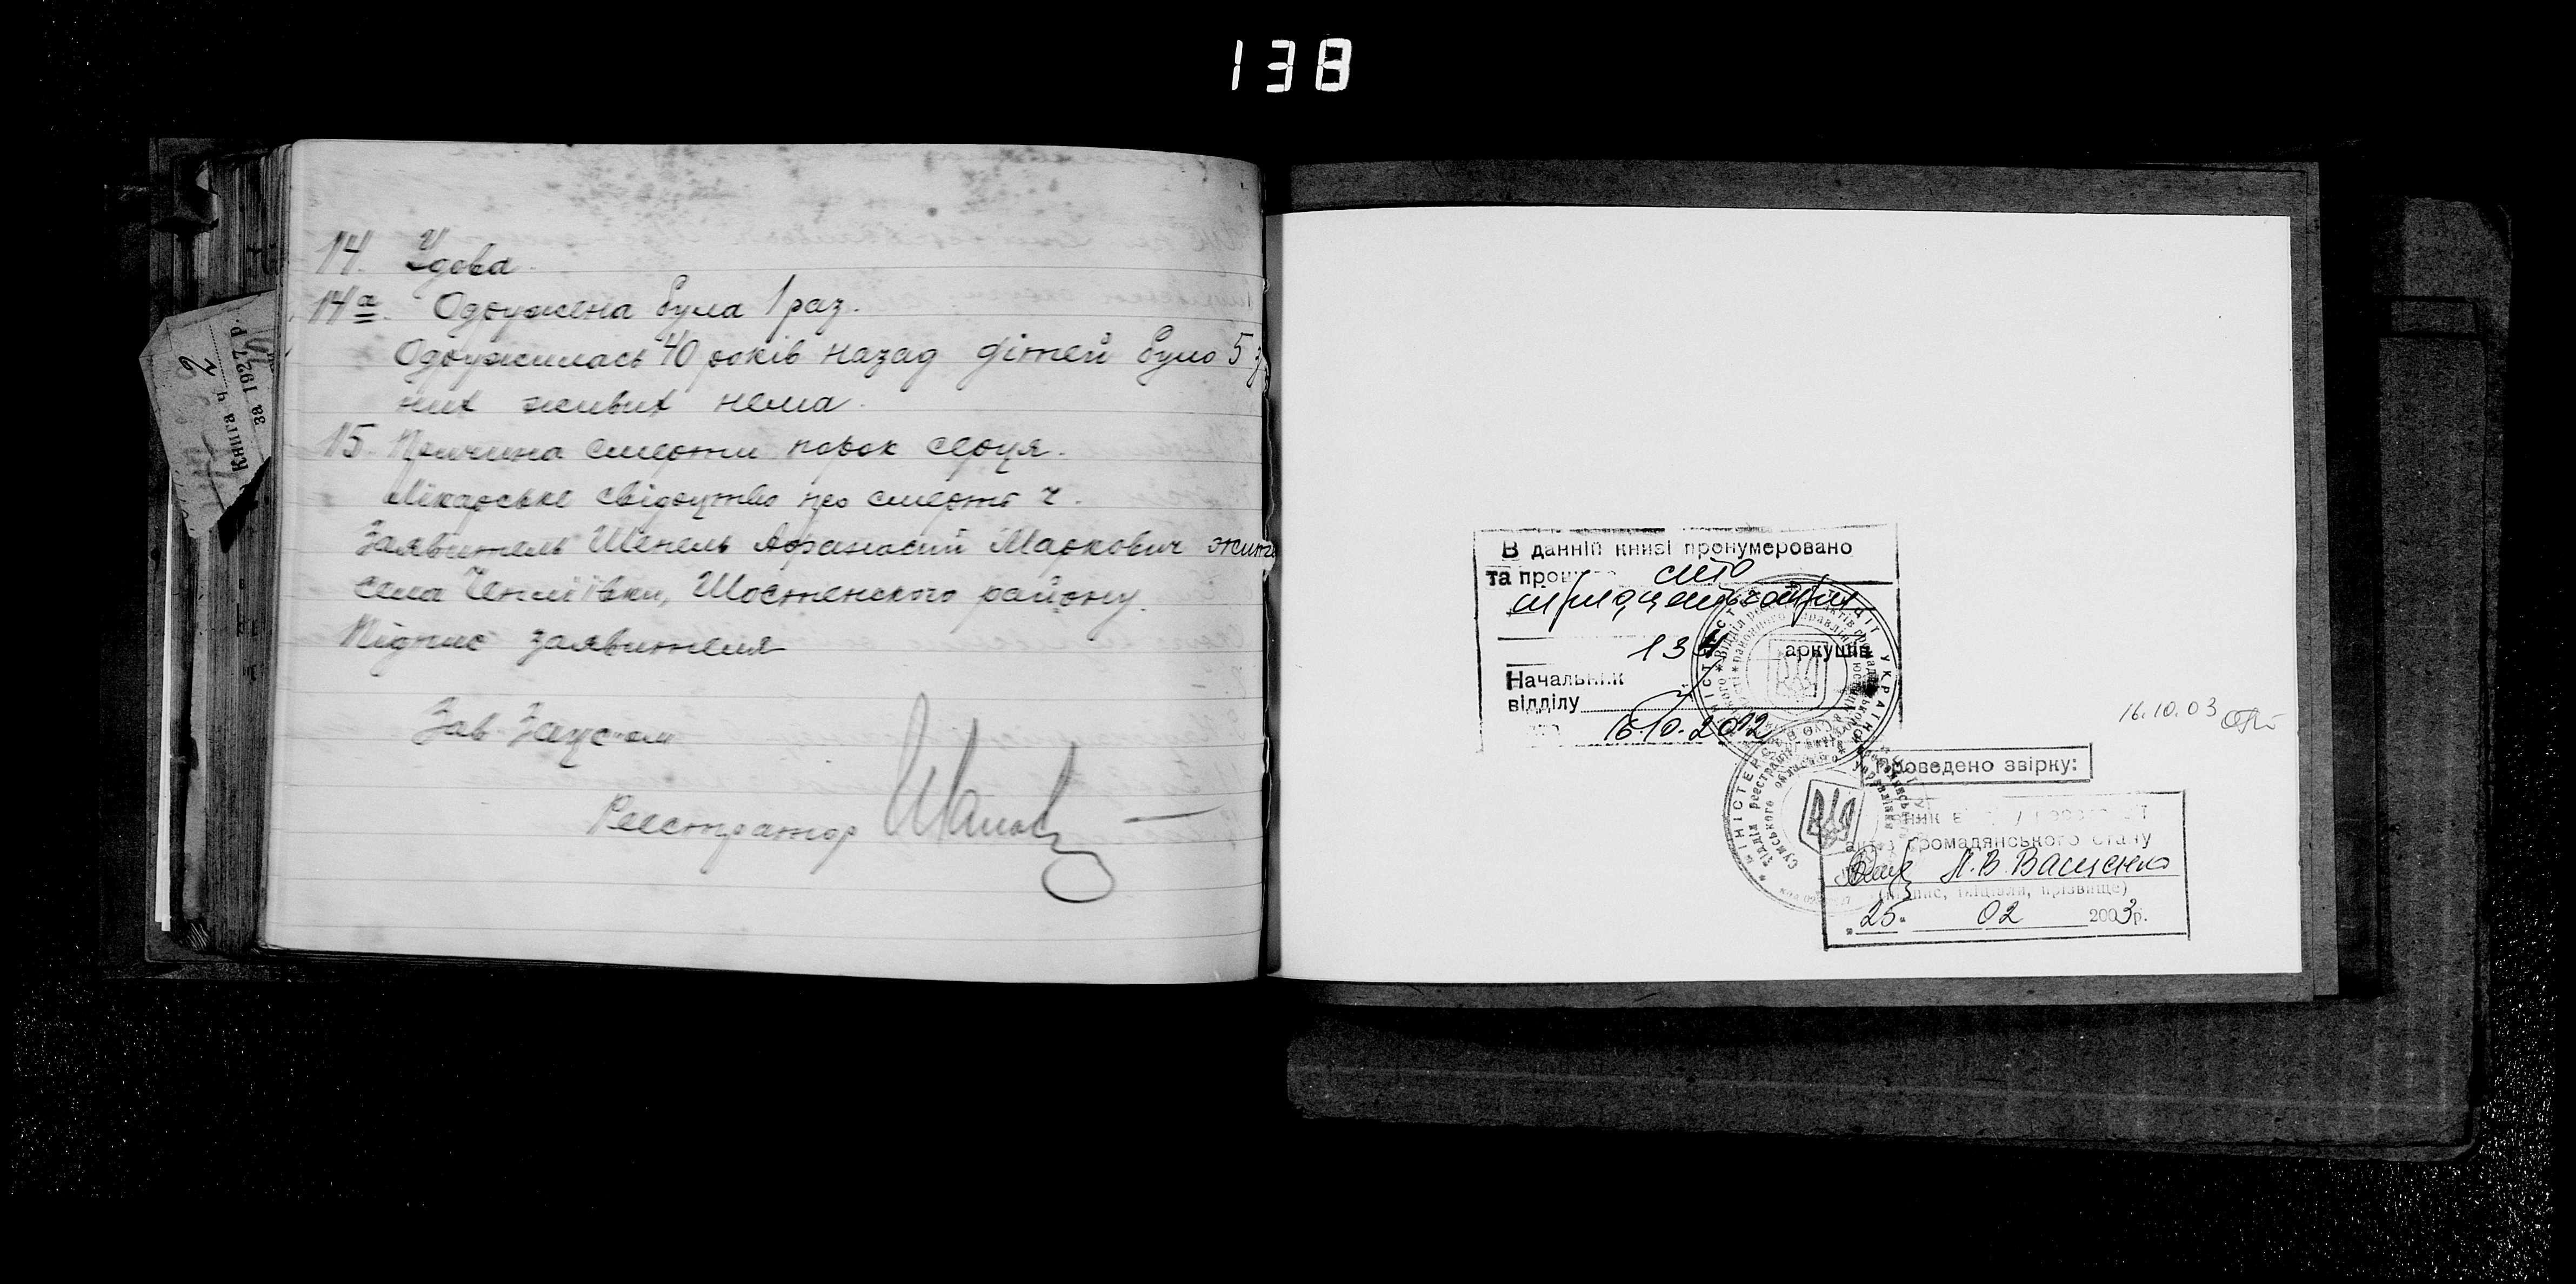 138
14. Удова.
14а. Одружена була 1 раз.
Одружилась 40 років назад дітей було 5 з
них живих нема.
15. Причина смерти порок серця.
Лікарське свідоцтво про смерть ч.
Заявитель Шепель Афанасий Маркович жит
села Чепліївки, Шостенского району.
Підпис заявителя
Зав. Загс'ом
Реєстратор
Книга ч. 2
за 1927 р.
В данній книзі пронумеровано
та сто
тридцять чотири
134 аркушів
Начальник
відділу
16.10.2012
16.10.03
Проведено звірку:
громадянського стану
Н.В. Ващенко
(підпис, ініціали, прізвище)
"25" 02 2003р.